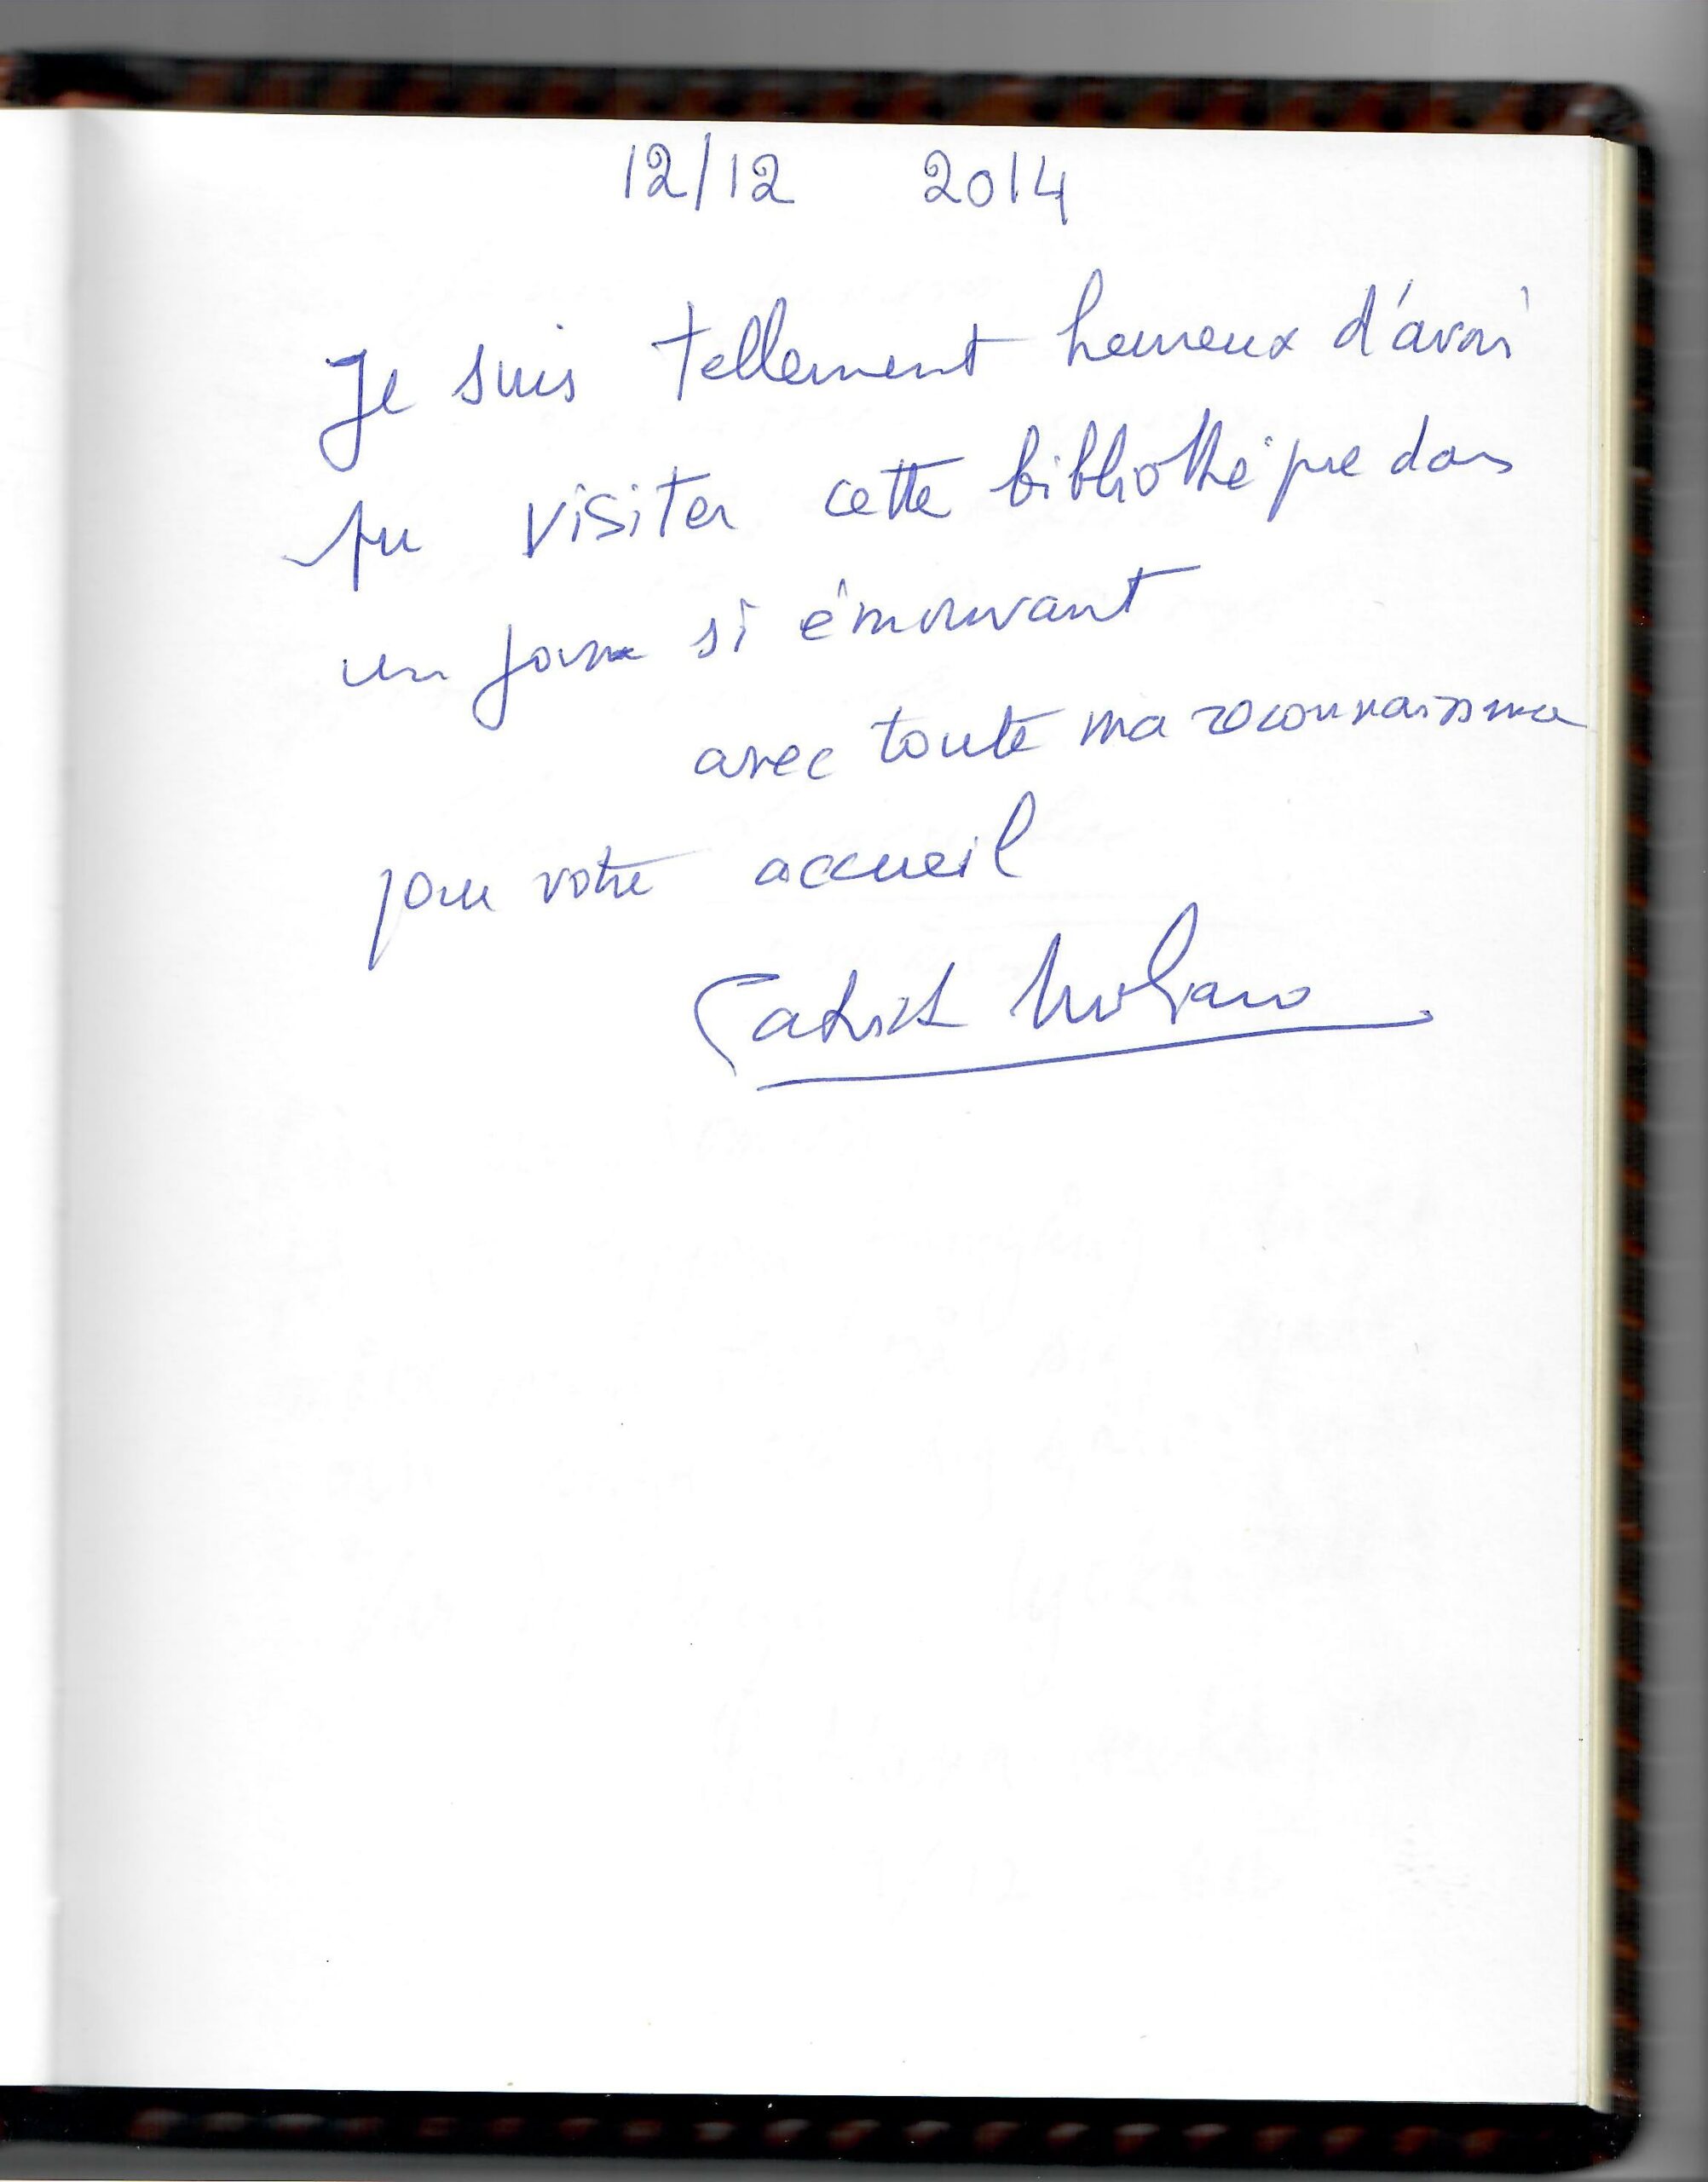 12/12 2014
Je suis tellement heureux d'avoir
pu visiter cette bibliothèque dans
un jour si émouvant
avec toute ma reconnaissance
pour votre accueil
Patrick Modiano